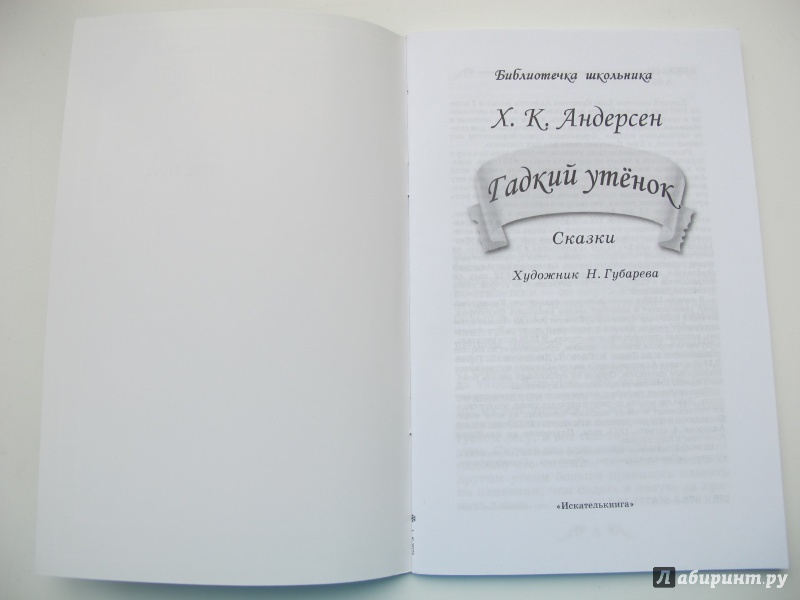 Библиотечка школьника
Х. К. Андерсен
Гадкий утёнок
Сказки
Художник Н. Губарева
«Искателькнига»
Лабиринт.ру